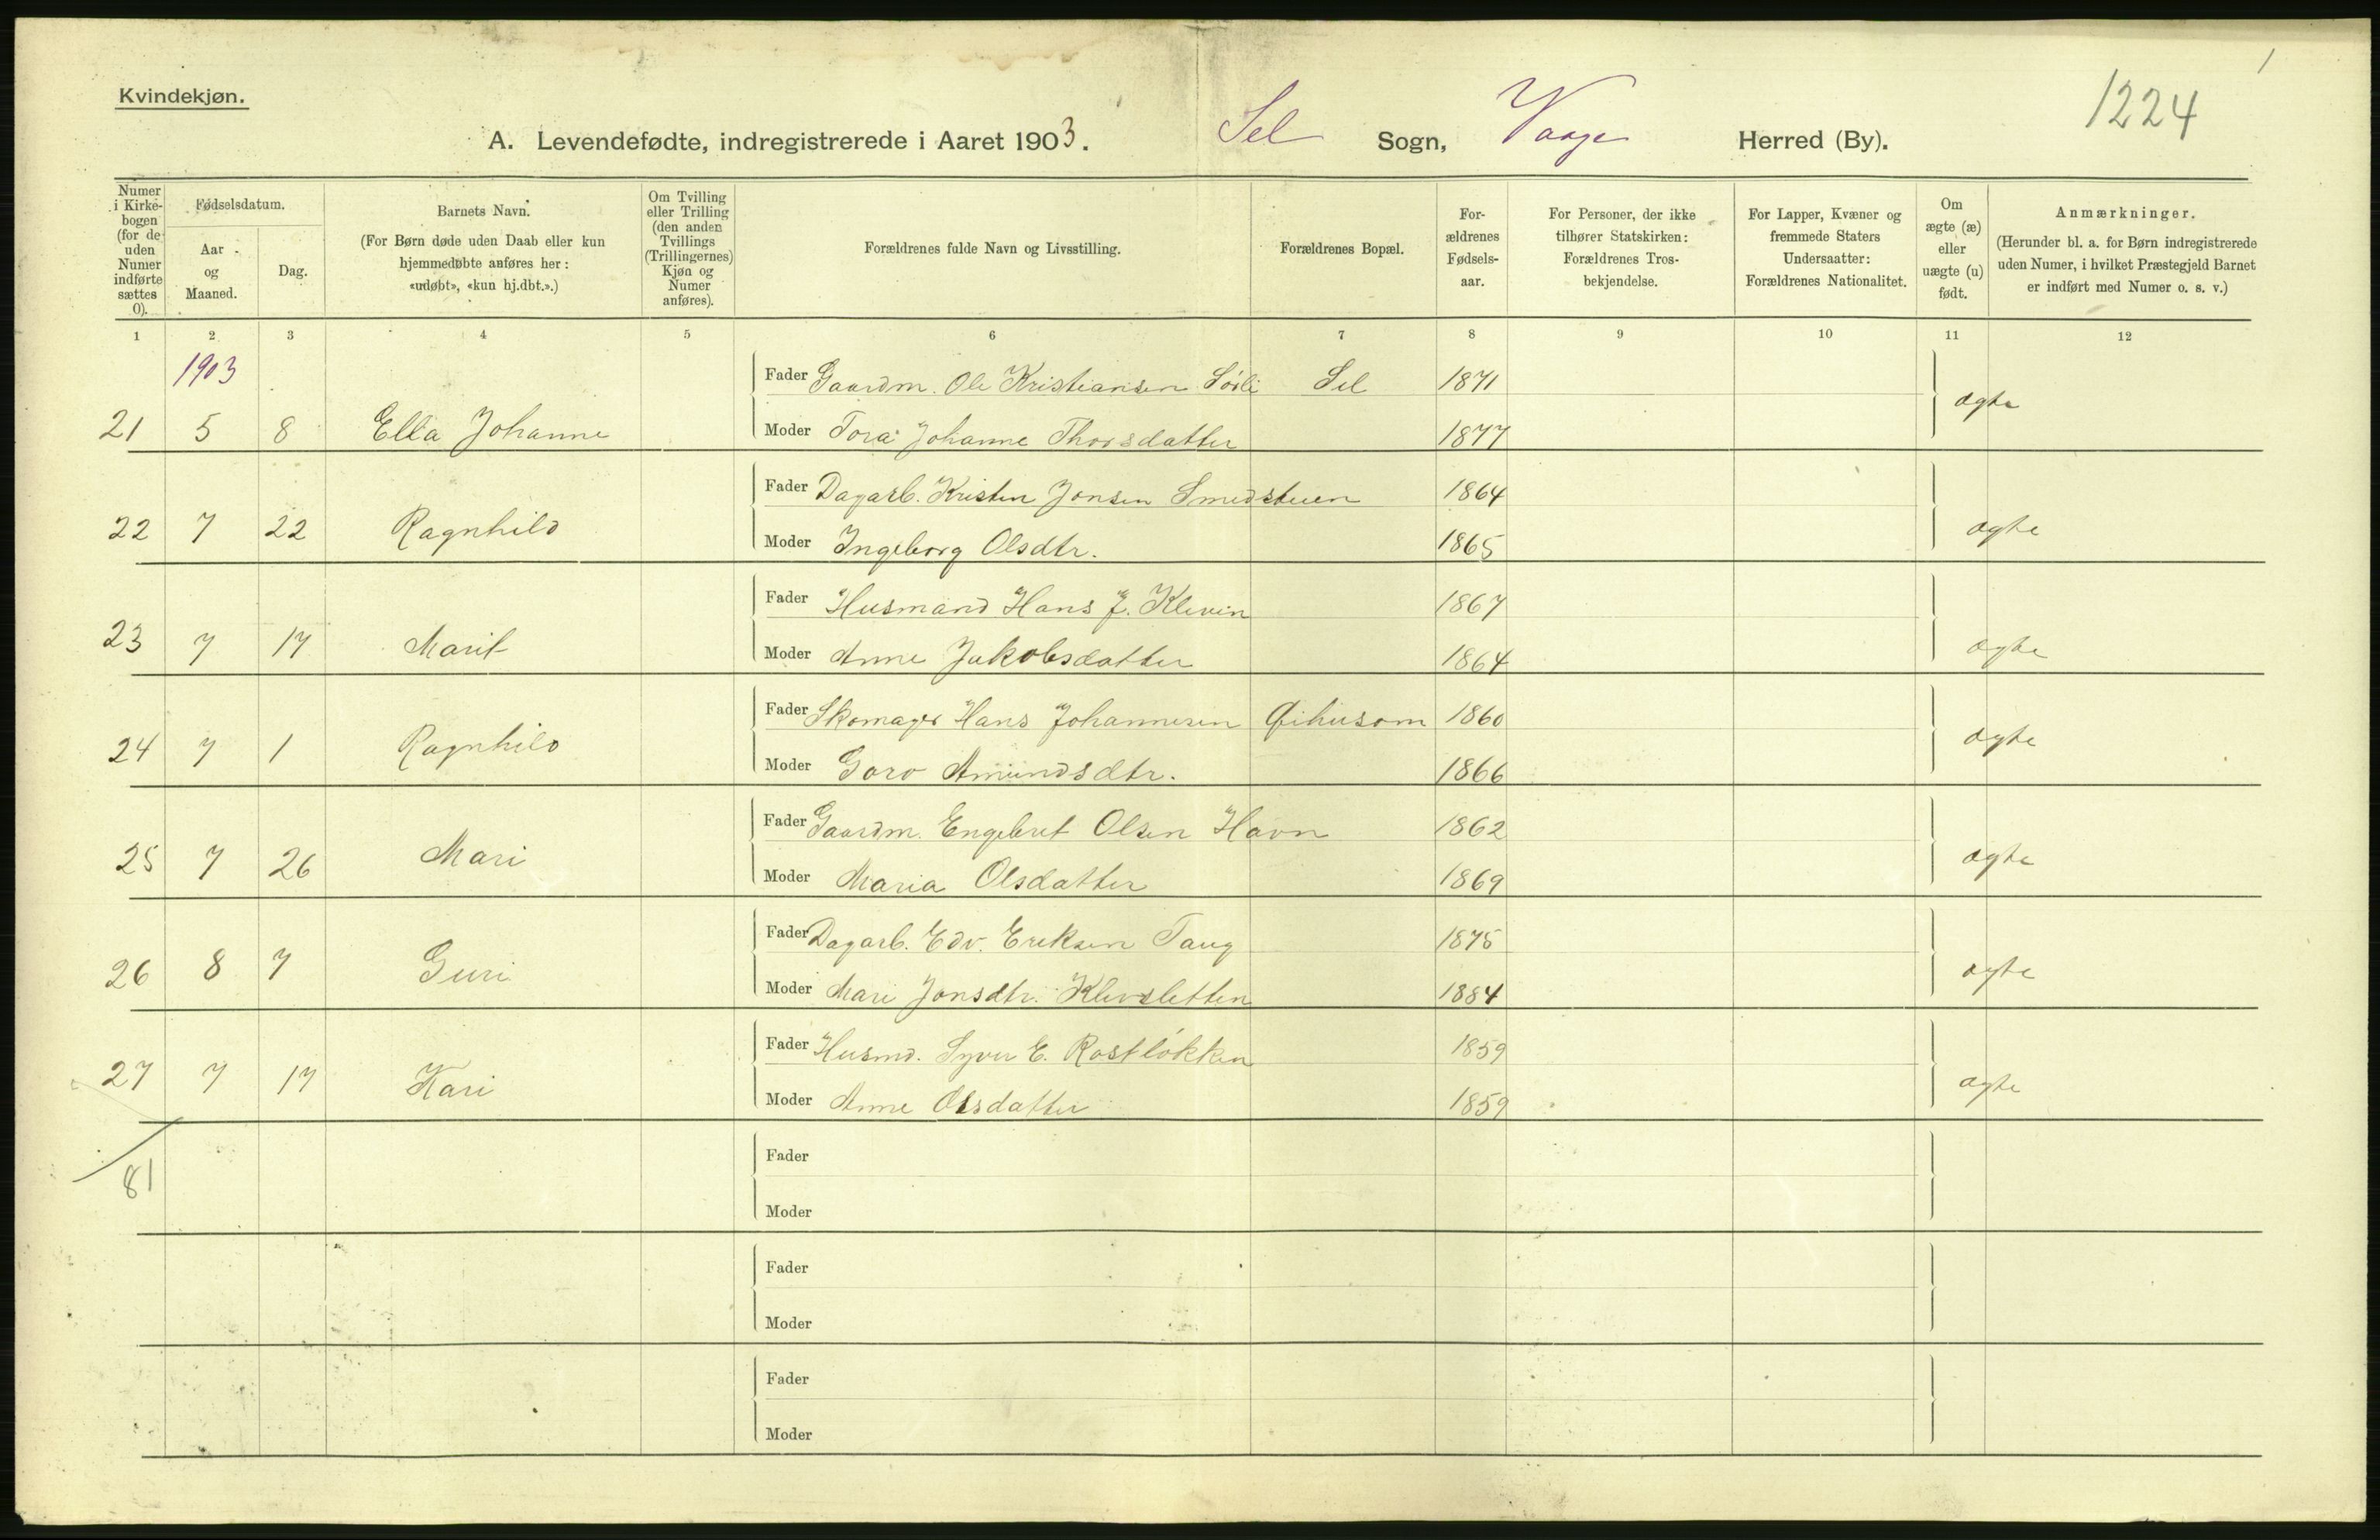 Kvindekjøn.
1224
A. Levendefødte, indregistrerede i Aaret 1903. Sel Sogn, Vaage Herred (By).
Numer i Kirkebogen (for de uden Numer indførte sættes 0).
Fødselsdatum.
Aar og Maaned.
Dag.
Barnets Navn.
(For Børn døde uden Daab eller kun hjemmedøbte anføres her: «udøbt», «kun hj.dbt.».)
Om Tvilling eller Trilling (den anden Tvillings (Trillingernes) Kjøn og Numer anføres).
Forældrenes fulde Navn og Livsstilling.
Forældrenes Bopæl.
Forældrenes Fødselsaar.
For Personer, der ikke tilhører Statskirken: Forældrenes Trosbekjendelse.
For Lapper, Kvæner og fremmede Staters Undersaatter: Forældrenes Nationalitet.
Om ægte (æ) eller uægte (u) født.
Anmærkninger.
(Herunder bl. a. for Børn indregistrerede uden Numer, i hvilket Præstegjeld Barnet er indført med Numer o. s. v.)
1 2 3 4 5 6 7 8 9 10 11 12
1903
Fader Gaardm. Ole Kristiansen Sörli Sel 1871
21 5 8 Ella Johanne Moder Tora Johanne Thorsdatter 1877 ægte
Fader Dagarb. Kristen Jonsen Smedstuen 1864
22 7 22 Ragnhild Moder Ingeborg Olsdtr. 1865 ægte
Fader Husmand Hans J. Kleven 1867
23 7 17 Marit Moder Anne Jakobsdatter 1864 ægte
Fader Skomager Hans Johannesen 1860
24 7 1 Ragnhild Moder Goro Amundsdtr. 1866 ægte
Fader Gaardm. Engebret Olsen Havn 1862
25 7 26 Mari Moder Maria Olsdatter 1869 ægte
Fader Dagarb. Edv. Eriksen Taug 1875
26 8 7 Guri Moder Mari Jonsdtr. Klevsletten 1884 ægte
Fader Husmd. Syver E. Rostlökken 1859
27 7 17 Kari Moder Anne Olsdatter 1859 ægte
81
Fader
Moder
Fader
Moder
Fader
Moder